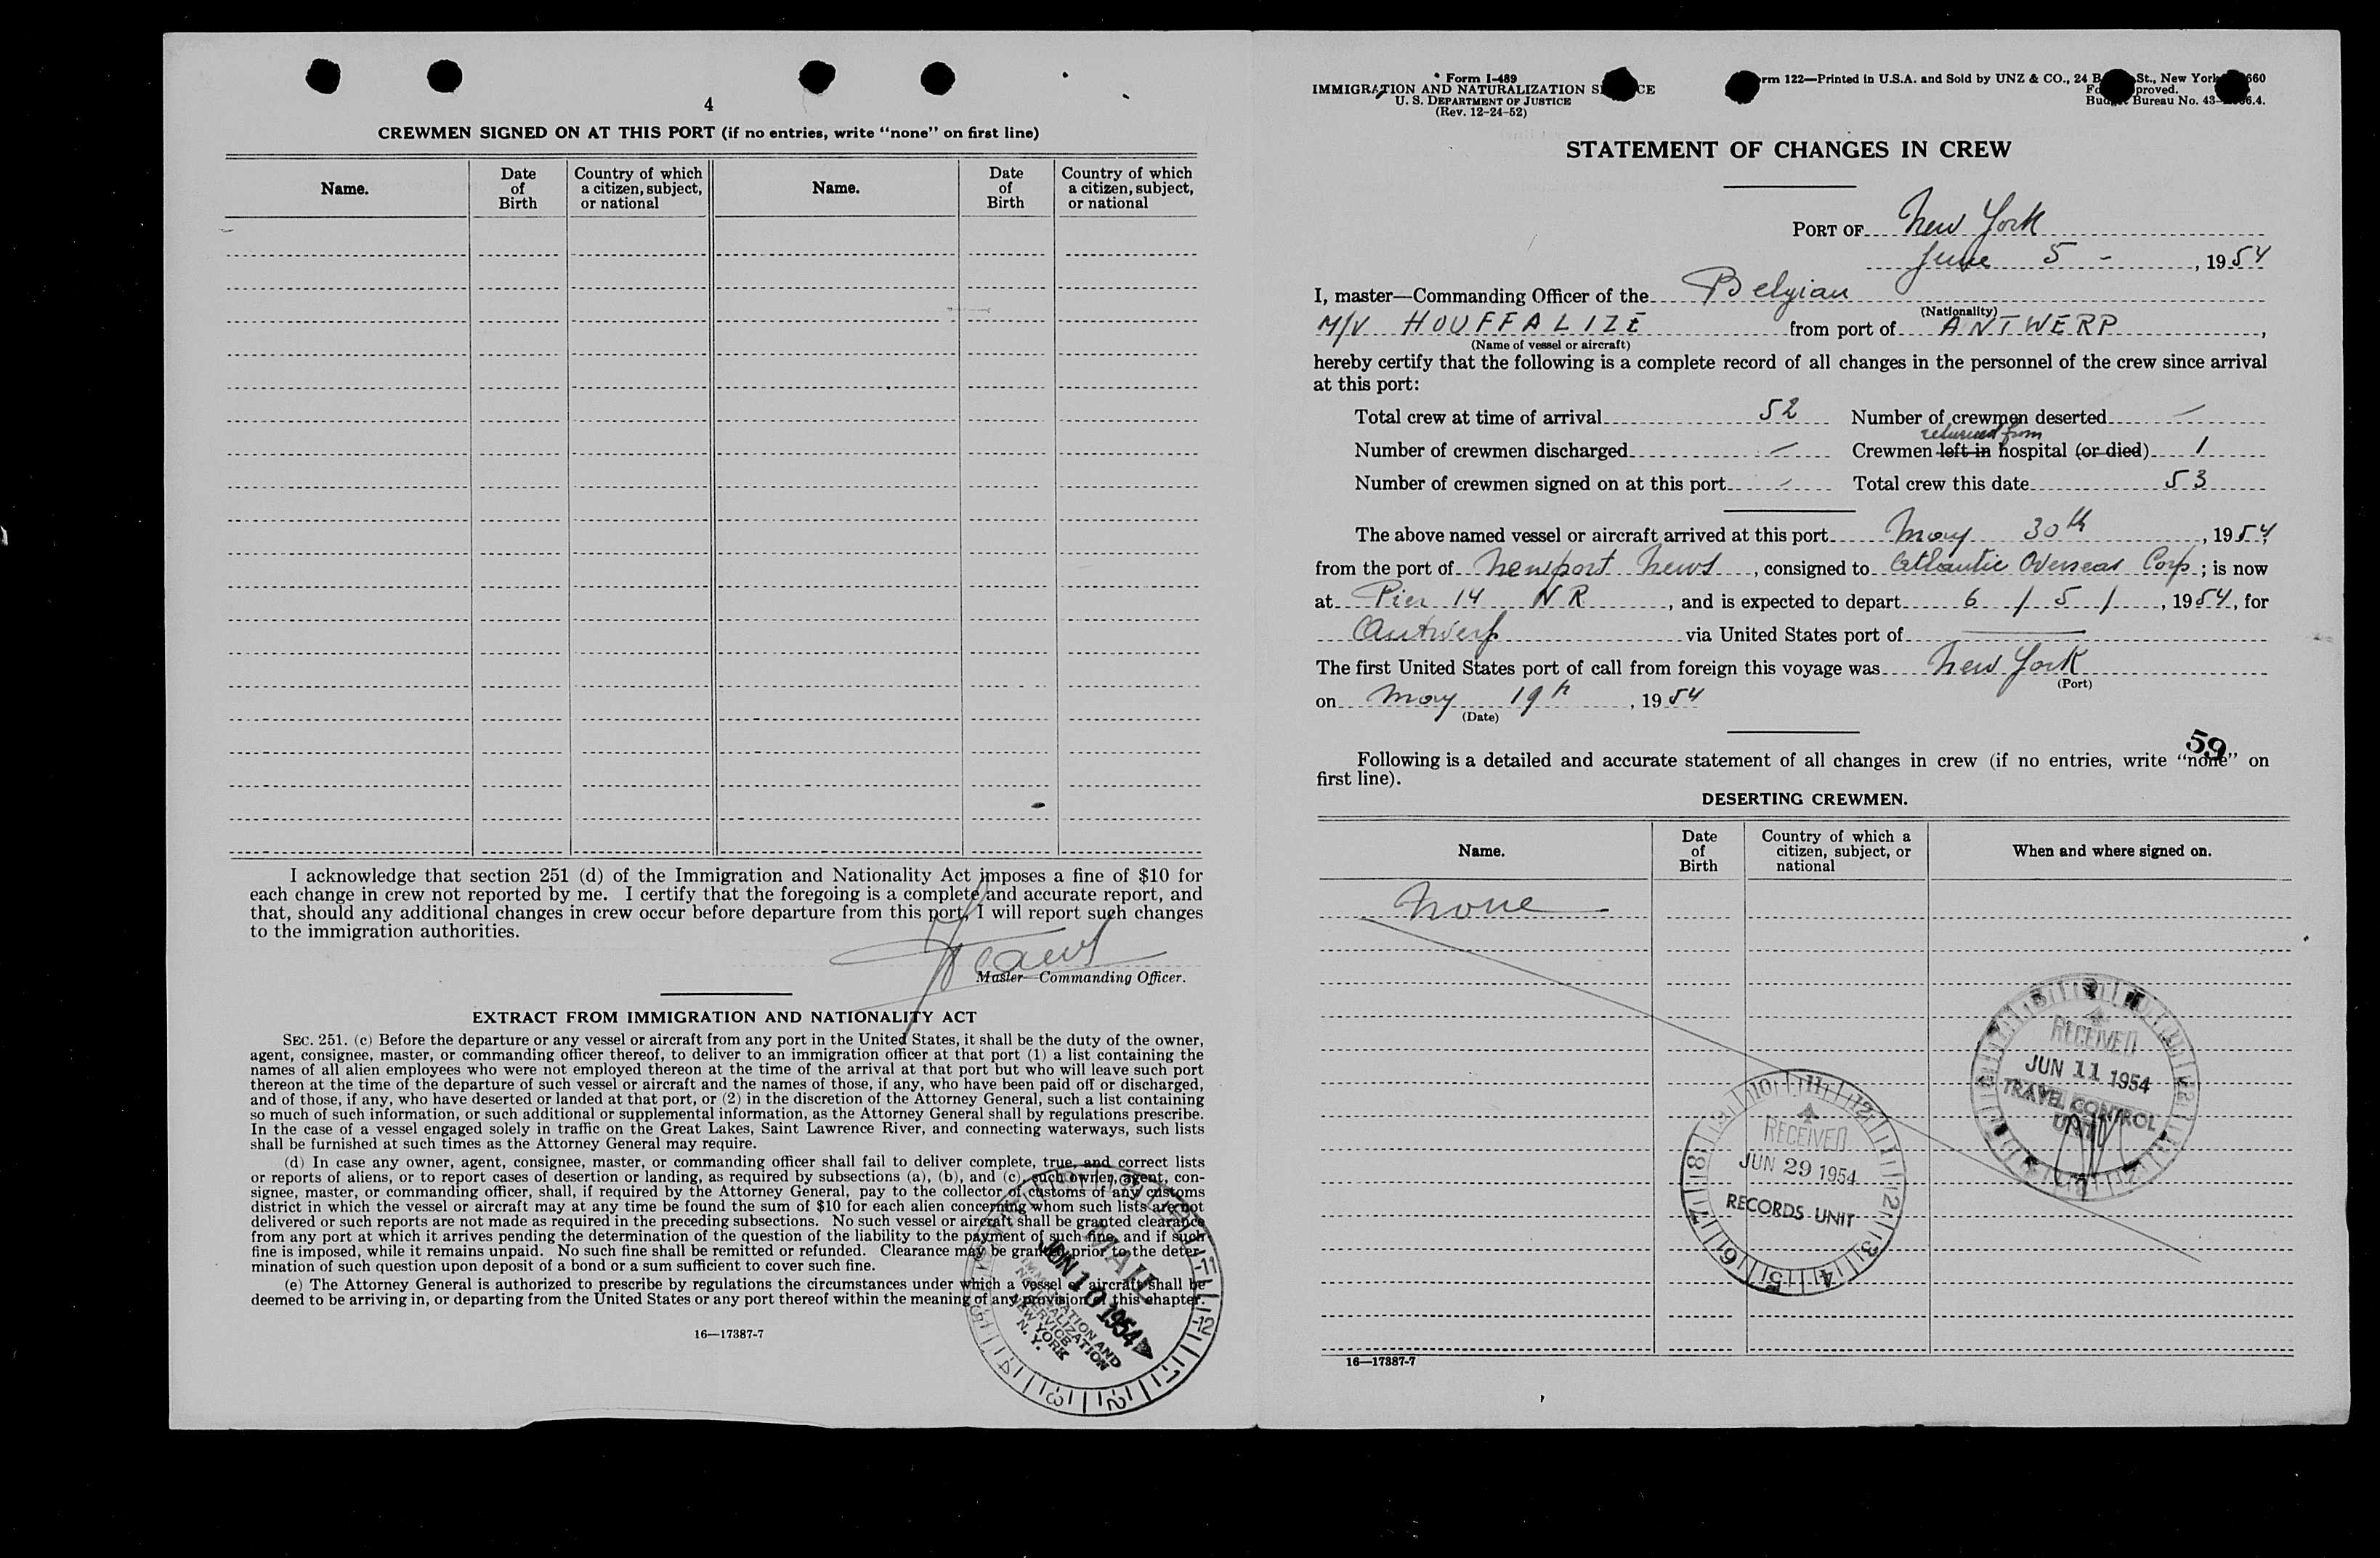 4
CREWMEN SIGNED ON AT THIS PORT (if no entries, write “none” on first line)
Name. Date of Birth Country of which a citizen, subject, or national Name. Date of Birth Country of which a citizen, subject, or national
I acknowledge that section 251 (d) of the Immigration and Nationality Act imposes a fine of $10 for
each change in crew not reported by me. I certify that the foregoing is a complete and accurate report, and
that, should any additional changes in crew occur before departure from this port, I will report such changes
to the immigration authorities.
Master—Commanding Officer.
EXTRACT FROM IMMIGRATION AND NATIONALITY ACT
SEC. 251. (c) Before the departure or any vessel or aircraft from any port in the United States, it shall be the duty of the owner,
agent, consignee, master, or commanding officer thereof, to deliver to an immigration officer at that port (1) a list containing the
names of all alien employees who were not employed thereon at the time of the arrival at that port but who will leave such port
thereon at the time of the departure of such vessel or aircraft and the names of those, if any, who have been paid off or discharged,
and of those, if any, who have deserted or landed at that port, or (2) in the discretion of the Attorney General, such a list containing
so much of such information, or such additional or supplemental information, as the Attorney General shall by regulations prescribe.
In the case of a vessel engaged solely in traffic on the Great Lakes, Saint Lawrence River, and connecting waterways, such lists
shall be furnished at such times as the Attorney General may require.
(d) In case any owner, agent, consignee, master, or commanding officer shall fail to deliver complete, true, and correct lists
or reports of aliens, or to report cases of desertion or landing, as required by subsections (a), (b), and (c), such owner, agent, con-
signee, master, or commanding officer, shall, if required by the Attorney General, pay to the collector of customs of any customs
district in which the vessel or aircraft may at any time be found the sum of $10 for each alien concerning whom such lists are not
delivered or such reports are not made as required in the preceding subsections. No such vessel or aircraft shall be granted clearance
from any port at which it arrives pending the determination of the question of the liability to the payment of such fine, and if such
fine is imposed, while it remains unpaid. No such fine shall be remitted or refunded. Clearance may be granted prior to the deter-
mination of such question upon deposit of a bond or a sum sufficient to cover such fine.
(e) The Attorney General is authorized to prescribe by regulations the circumstances under which a vessel or aircraft shall be
deemed to be arriving in, or departing from the United States or any port thereof within the meaning of any provision of this chapter.
MAIL
JUN 10 1954
IMMIGRATION AND
NATURALIZATION
SERVICE
NEW YORK
N. Y.
16—17387-7
Form I-489
IMMIGRATION AND NATURALIZATION S CE
U. S. DEPARTMENT OF JUSTICE
(Rev. 12-24-52)
rm 122—Printed in U.S.A. and Sold by UNZ & CO., 24 B St., New York 660
Fo proved.
Budget Bureau No. 43- 6.4.
STATEMENT OF CHANGES IN CREW
PORT OF New York
June 5 - , 1954
I, master—Commanding Officer of the Belgian
(Nationality)
M/V HOUFFALIZE from port of ANTWERP ,
(Name of vessel or aircraft)
hereby certify that the following is a complete record of all changes in the personnel of the crew since arrival
at this port:
Total crew at time of arrival 52 Number of crewmen deserted —
returned from
Number of crewmen discharged — Crewmen left in hospital (or died) 1
Number of crewmen signed on at this port — Total crew this date 53
The above named vessel or aircraft arrived at this port May 30th , 1954
from the port of Newport News , consigned to Atlantic Overseas Corp ; is now
at Pier 14 NR , and is expected to depart 6 / 5 / , 1954, for
Antwerp via United States port of —
The first United States port of call from foreign this voyage was New York
(Port)
on May 19th , 1954
(Date)
59
Following is a detailed and accurate statement of all changes in crew (if no entries, write “none” on
first line).
DESERTING CREWMEN.
Name. Date of Birth Country of which a citizen, subject, or national When and where signed on.
None
RECEIVED
JUN 11 1954
TRAVEL CONTROL
UNIT
RECEIVED
JUN 29 1954
RECORDS UNIT
16—17387-7